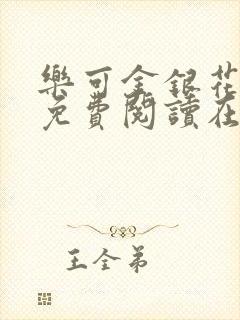 樂可金銀花
免費閱讀在
王全弟